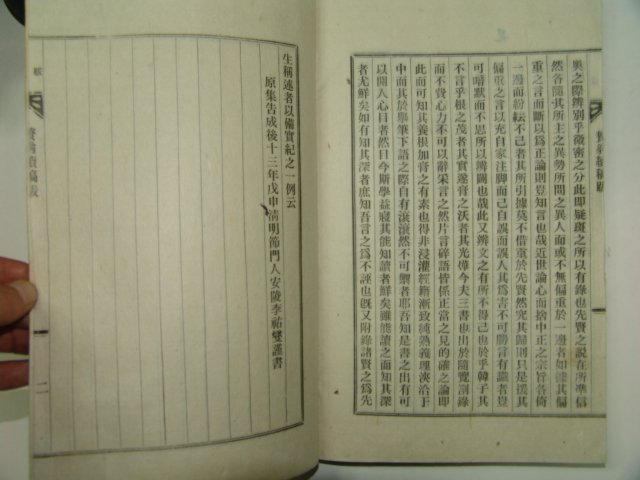 奧之際辨別乎微密之分此即疑斑之所以有錄也先賢之說在所準信
然各隨其所主之異勢所問之異人而或不無偏重於一邊者如據其偏
重之言而斷以爲正論則豈知言也哉近世論心而捨中正之宗旨各倚
一邊而紛紜不已者其所引據莫不借重於先賢然究其歸則只是援其
偏重之言以充自家注脚而已自誤而誤人其爲害不可勝言有識者豈
可暗默而不思所以辨闢也哉此又辨文之有所不得已也於乎韓子其
不言乎根之茂者其實遂膏之沃者其光燁今夫三書也出於隨覽劄錄
而不費心力不可以辭采言之然片言碎語皆係正當之見的確之論即
此而可知其養根加膏之有素也得非浸灌經籍漸致純熟義理浹洽于
中而其於擧筆下語之際自有滾滾然不可禦者耶吾知是書之出有可
以開人心目者然曰今斯學益寢其能知讀者鮮矣雖能讀之而知其深
者尤鮮矣如有知其深者庶知吾言之爲不誣也旣又附錄諸賢之爲先
生稱述者以備實紀之一例云
原集告成後十三年戊申淸明節門人安陵李祐燮謹書
跋
二